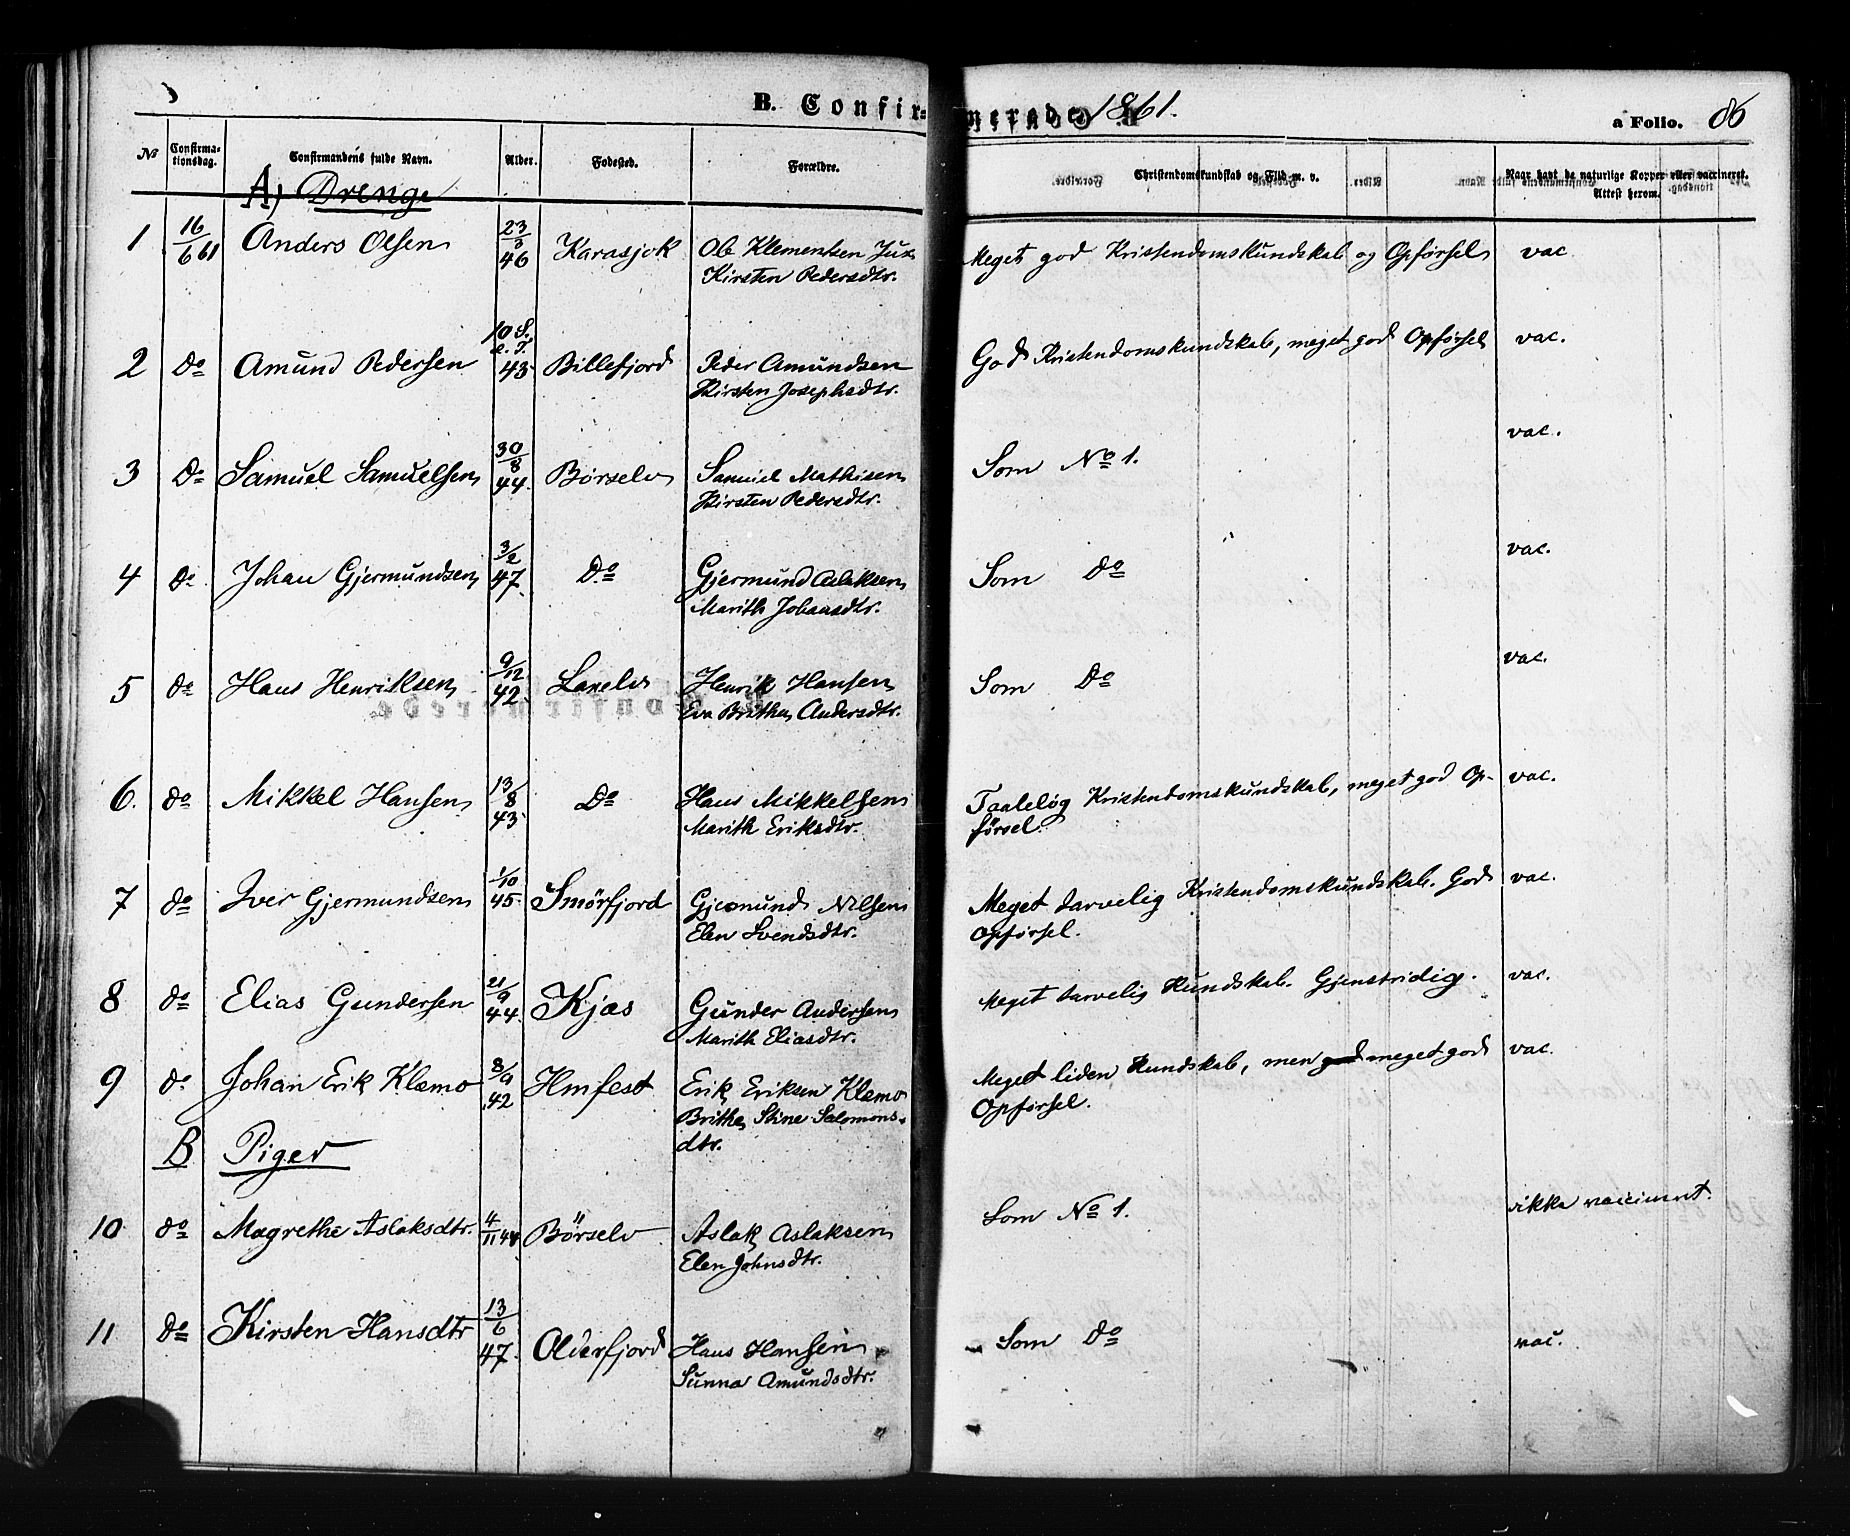 B. Confirmerede 1861. a Folio. 86
No Confirmationsdag. Confirmandens fulde Navn. Alder. Fodested. Forældre. Christendomskundskab og Flid m. v. Naar havt de naturlige Kopper eller vaccineret. Attest herom.
A) Drenge
1 16/6 61 Anders Olsen 23/3 46 Karasjok Ole Klementsen Meget god Kristendomskundskab og Opførsel vac
Kirsten Pedersdtr.
2 Do Amund Pedersen 43 Billefjord Peder Amundsen God Kristendomskundskab, meget god Opførsel vac.
Kirsten Josephsdtr.
3 Do Samuel Samuelsen 30/8 44. Börselv Samuel Mathisen Som No 1. vac.
Kirsten Pedersdtr.
4 Do Johan Gjermundsen 3/2 47. Do Gjermund Aslaksen Som Do vac.
Marith Johansdtr.
5 Do Hans Henriksen 9/12 42. Laxelv Henrik Hansen Som Do vac.
Eva Brithe Andersdtr.
6. Do Mikkel Hansen 13/8 43. Do Hans Mikkelsen Taaleløg Kristendomskundskab, meget god Op- vac.
Marith Eriksdtr. førsel.
7 Do Iver Gjermundsen 1/10 45. Smörfjord Gjermund Nilsen Meget tarvelig Kristendomskundskab. God vac.
Elen Svendsdtr. Opførsel.
8 Do Elias Gundersen 21/9 44. Kjæs Gunder Andersen Meget tarvelig Kundskab. Gjenstridig. vac.
Marith Eliasdtr.
9 Do Johan Erik Klemo 8/9 42 Hmfest Erik Eriksen Klemo Meget liden Kundskab, men god meget god vac.
Brithe Stine Salomons- Opførsel.
dtr.
B Piger
10 Do Magrethe Aslaksdtr. 4/11 44 Börselv Aslak Aslaksen Som No 1. ikke vaccineret.
Elen Johnsdtr.
11 Do Kirsten Hansdtr 13/6 47. Olderfjord Hans Hansen Som Do vac.
Sunna Amundsdtr.